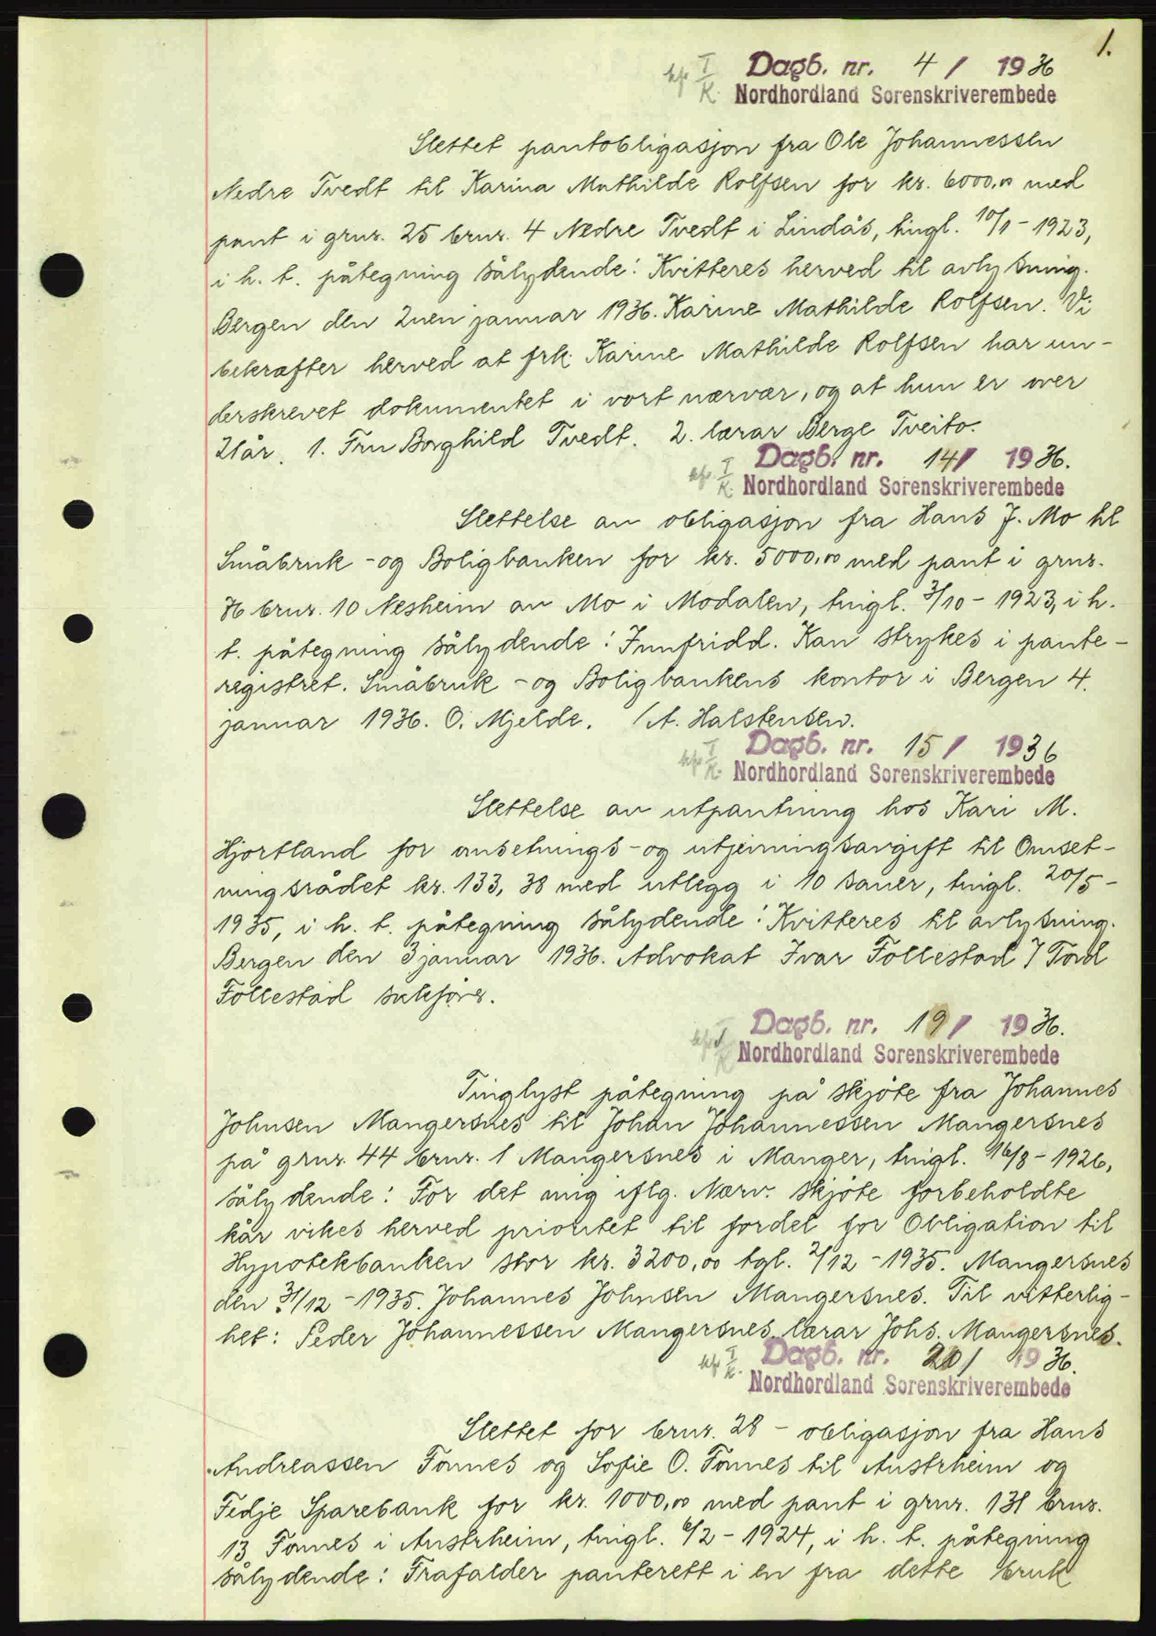 1.
Dagb. nr. 4 / 1936
Nordhordland Sorenskriverembede
Slettet pantobligasjon fra Ole Johannessen
Nedre Tvedt til Karina Mathilde Rolfsen for kr. 6000,00 med
pant i grnr. 25 brnr. 4 Nedre Tvedt i Lindås, tingl. 10/1 - 1923,
i h. t. påtegning sålydende: Kvitteres herved til avlysning.
Bergen den 2nen januar 1936. Karine Mathilde Rolfsen. Vi
bekræfter herved at frk. Karine Mathilde Rolfsen har un-
derskrevet dokumentet i vort nærvær, og at hun er over
21 år. 1. Fru Borghild Tvedt. 2. lærar Berge Tveito.
Dagb. nr. 14 / 1936.
Nordhordland Sorenskriverembede
Slettelse av obligasjon fra Hans J. Mo til
Småbruk - og Boligbanken for kr. 5000,00 med pant i grnr.
76 brnr. 10 Nesheim av Mo i Modalen, tingl. 3/10 - 1923, i h.
t. påtegning sålydende: Innfridd. Kan strykes i pante-
registret. Småbruk - og Boligbankens kontor i Bergen 4.
januar 1936. O. Mjelde. / A. Halstensen.
Dagb. nr. 15 / 1936
Nordhordland Sorenskriverembede
Slettelse av utpantning hos Kari M.
Hjortland for omsetnings - og utjevningsavgift til Omset-
ningsrådet kr. 133,38 med utlegg i 10 sauer, tingl. 20/5 -
1935, i h. t. påtegning sålydende: Kvitteres til avlysning.
Bergen den 3 januar 1936. Advokat Ivar Follestad / Tord
Follestad sakfører.
Dagb. nr. 19 / 1936.
Nordhordland Sorenskriverembede
Tinglyst påtegning på skjøte fra Johannes
Johnsen Mangersnes til Johan Johannessen Mangersnes
på grnr. 44 brnr. 1 Mangersnes i Manger, tingl. 16/8 - 1926,
sålydende: For det mig iflg. Nærv. skjøte forbeholdte
kår vikes herved prioritet til fordel for Obligation til
Hypotekbanken stor kr. 3200,00 tgl. 2/12 - 1935. Mangersnes
den 31/12 - 1935. Johannes Johnsen Mangersnes. Til vitterlig-
het: Peder Johannessen Mangersnes. lærar Johs. Mangersnes.
Dagb. nr. 20 / 1936.
Nordhordland Sorenskriverembede
Slettet for brnr. 28 - obligasjon fra Hans
Andreassen Fonnes og Sofie O. Fonnes til Austrheim og
Fedje Sparebank for kr. 1000,00 med pant i grnr. 131 brnr.
13 Fonnes i Austrheim, tingl. 6/2 - 1924, i h. t. påtegning
sålydende: Frafalder panterett i en fra dette bruk